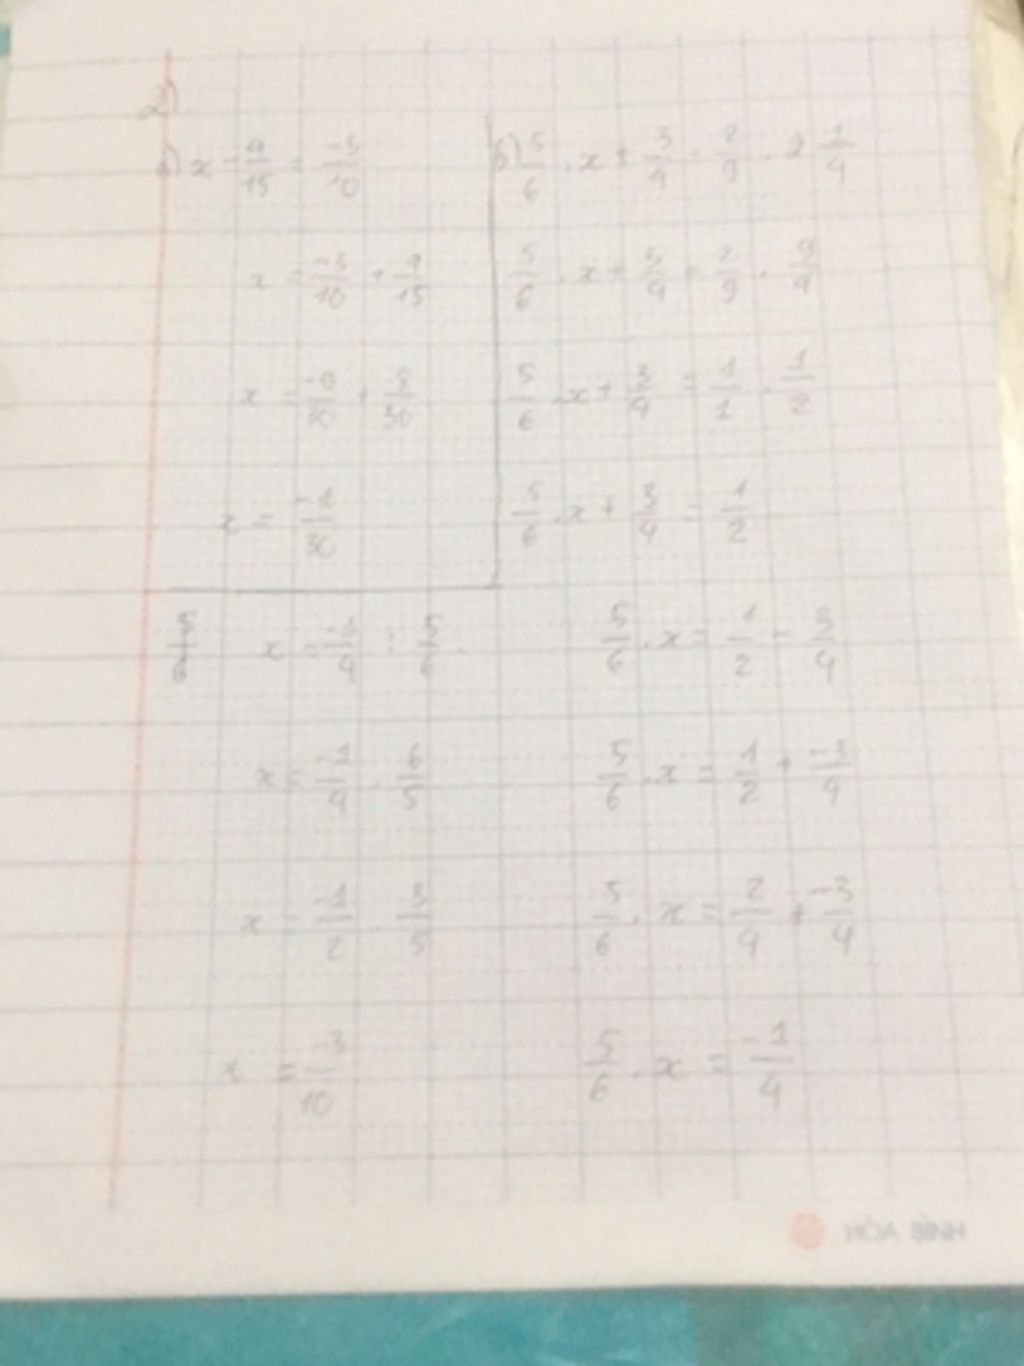 2)
a) x - 4/15 = -3/10
x = -3/10 + 4/15
x = -9/30 + 8/30
x = -1/30
b) 5/6 . x + 3/4 = 2/9 . 2 1/4
5/6 . x + 3/4 = 2/9 . 9/4
5/6 . x + 3/4 = 1/1 . 1/2
5/6 . x + 3/4 = 1/2
5/6 . x = 1/2 - 3/4
5/6 . x = 1/2 + -3/4
5/6 . x = 2/4 + -3/4
5/6 . x = -1/4
5/6 x = -1/4 : 5/6
x = -1/4 . 6/5
x = -1/2 . 3/5
x = -3/10